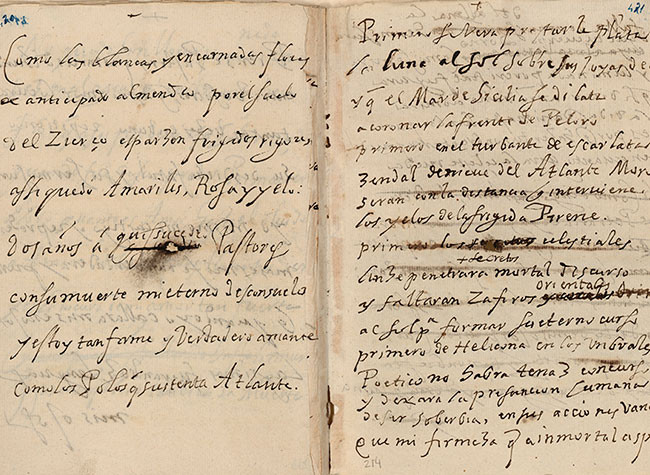 Como las blancas y encarnadas flores
de anticipado almendro por el suelo
del Zierço esparzen frigidos rigores
assi quedo Amarilis, Rosa y yelo:
dos años á que Pastores
con su muerte mi eterno desconsuelo
y estoy tan firme y verdadero amante
como los Polos q sustenta Atlante.
421
Primero se vera prestarle plata
la luna al sol sobre sus joyas de
y q el Mar de Sicilia se dilata
a coronar la frente de Peloro
primero en el turbante de escarlata
zendal de nieve del Atlante Moro
seran con la distancia q interviene
los yelos de la frigida Pirene.
primero los secretos celestiales
penetrara mortal discurso
y faltaran Zafiros orientales
al sol pª formar su eterno curso
primero de Helicona en los umbrales
Poetico no sabra tener concurso
y dexara la presuncion humana
de ser soberbia, en sus acciones vana
que mi firmeza q a inmortal asp
214